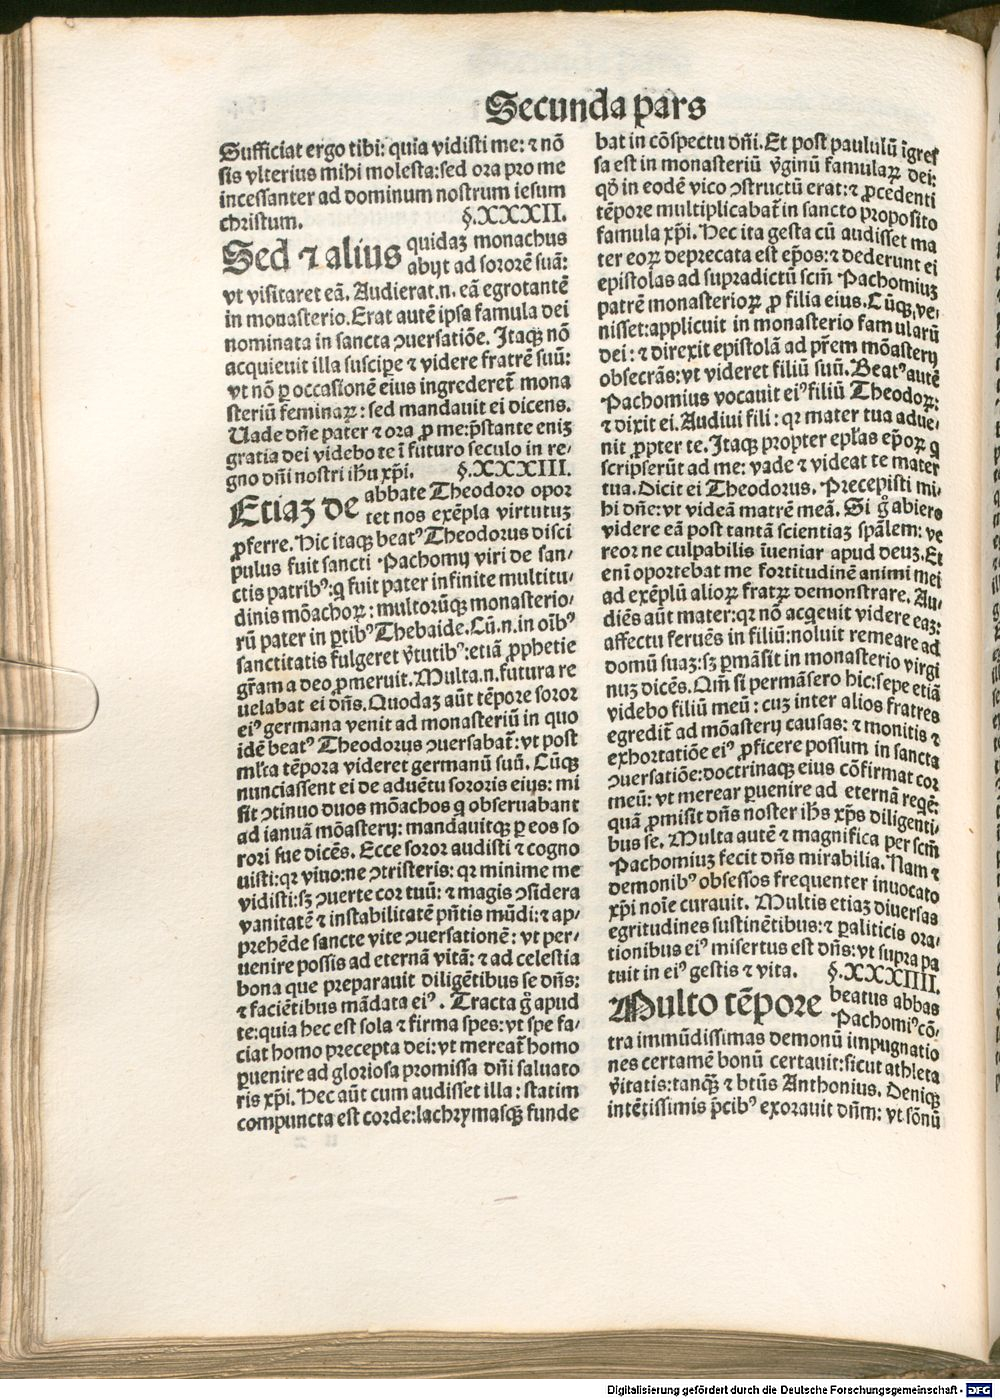 Secunda pars
Sufficiat ergo tibi: quia vidisti me: ⁊ nō
sis vlterius mihi molesta: sed ora pro me
incessanter ad dominum nostrum iesum
christum. §.XXXII.
Sed ⁊ alius quidaʒ monachus
abijt ad sororē suā:
vt visitaret eā. Audierat .n. eā egrotantē
in monasterio. Erat autē ipsa famula dei
nominata in sancta ↄuersatiōe. Itaqꝫ nō
acquieuit illa suscipe ⁊ videre fratrē suū:
vt nō ꝑ occasionē eius ingrederet̄ mona
steriū feminaꝝ: sed mandauit ei dicens.
Uade dn̄e pater ⁊ ora ꝓ me: p̄stante eniʒ
gratia dei videbo te ī futuro seculo in re-
gno dn̄i nostri ihū xp̄i. §.XXXIII.
Etiaʒ de abbate Theodoro opor
tet nos exēpla virtutuʒ
ꝓferre. Hic itaqꝫ beatꝰ Theodorus disci
pulus fuit sancti Pachomij viri de san-
ctis patribꝰ: q̇ fuit pater infinite multitu-
dinis mōachoꝝ: multorūqꝫ monasterio-
rū pater in ꝑtibꝰ Thebaide. Cū .n. in oībꝰ
sanctitatis fulgeret v̓tutibꝰ: etiā ꝓphetie
gr̄am a deo ꝓmeruit. Multa .n. futura re
uelabat ei dn̄s. Quodaʒ aūt tēpore soror
eiꝰ germana venit ad monasteriū in quo
idē beatꝰ Theodorus ↄuersabat̄: vt post
ml̄ta tēpora videret germanū suū. Cūqꝫ
nunciassent ei de aduētu sororis eius: mi
sit ↄtinuo duos mōachos q̇ obseruabant
ad ianuā mōasterij: mandauitqꝫ ꝑ eos so
rori sue dicēs. Ecce soror audisti ⁊ cogno
uisti: qꝛ viuo: ne ↄtristeris: qꝛ minime me
vidisti: sꝫ ↄuerte cor tuū: ⁊ magis ↄsidera
vanitatē ⁊ instabilitatē pn̄tis mūdi: ⁊ ap-
prehēde sancte vite ↄuersationē: vt per-
uenire possis ad eternā vitā: ⁊ ad celestia
bona que preparauit diligētibus se dn̄s:
⁊ faciētibus mādata eiꝰ. Tracta g̊ apud
te: quia hec est sola ⁊ firma spes: vt spe fa-
ciat homo precepta dei: vt mereat̄ homo
ꝑuenire ad gloriosa promissa dn̄i saluato
ris xp̄i. Hec aūt cum audisset illa: statim
compuncta est corde: lachrymasqꝫ funde
bat in cōspectu dn̄i. Et post paululū īgres
sa est in monasteriū v̓ginū famulaꝝ dei:
qd̓ in eodē vico ↄstructū erat: ⁊ ꝓcedenti
tēpore multiplicabat̄ in sancto proposito
famula xp̄i. Hec ita gesta cū audisset ma
ter eoꝝ deprecata est ep̄os: ⁊ dederunt ei
epistolas ad supradictū scm̄ Pachomiuʒ
patrē monasterioꝝ ꝓ filia eius. Cūqꝫ ve-
nisset: applicuit in monasterio famularū
dei: ⁊ direxit epistolā ad pr̄em mōasterij
obsecrās: vt videret filiū suū. Beatꝰ autē
Pachomius vocauit eiꝰ filiū Theodoꝝ:
⁊ dixit ei. Audiui fili: qꝛ mater tua adue-
nit ꝓpter te. Itaqꝫ propter ep̄las ep̄oꝝ q̇
scripserūt ad me: vade ⁊ videat te mater
tua. Dicit ei Theodorus. Precepisti mi-
hi dn̄e: vt videā matrē meā. Si g̊ abiero
videre eā post tantā scientiaʒ sp̄alem: ve
reor ne culpabilis īueniar apud deuʒ. Et
enī oportebat me fortitudinē animi mei
ad exēplū alioꝝ fratꝝ demonstrare. Au-
diēs aūt mater: qꝛ nō acq̇euit videre eaʒ:
affectu feruēs in filiū: noluit remeare ad
domū suaʒ: sꝫ ꝑmāsit in monasterio virgi
nuʒ dicēs. Qm̄ si permāsero hic: sepe etiā
videbo filiū meū: cuʒ inter alios fratres
egredit̄ ad mōasterij causas: ⁊ monitis ⁊
exhortatiōe eiꝰ ꝓficere possum in sancta
ↄuersatiōe: doctrinaqꝫ eius cōfirmat cor
meū: vt merear ꝑuenire ad eternā requiē:
quā ꝓmisit dn̄s noster ih̄s xp̄s diligenti-
bus se. Multa autē ⁊ magnifica per scm̄
Pachomiuʒ fecit dn̄s mirabilia. Nam ⁊
demonibꝰ obsessos frequenter inuocato
xp̄i noīe curauit. Multis etiaʒ diuersas
egritudines sustinētibus: ⁊ ꝑaliticis ora-
tionibus eiꝰ misertus est dn̄s: vt supra pa
tuit in eiꝰ gestis ⁊ vita. §.XXXIIII.
Multo tēpore beatus abbas
Pachomiꝰ cō-
tra immūdissimas demonū impugnatio
nes certamē bonū certauit: sicut athleta
v̓itatis: tanqꝫ̄ ⁊ btūs Anthonius. Deniqꝫ
intētissimis p̄cibꝰ exorauit dn̄m: vt sōnū
Digitalisierung gefördert durch die Deutsche Forschungsgemeinschaft - DFG